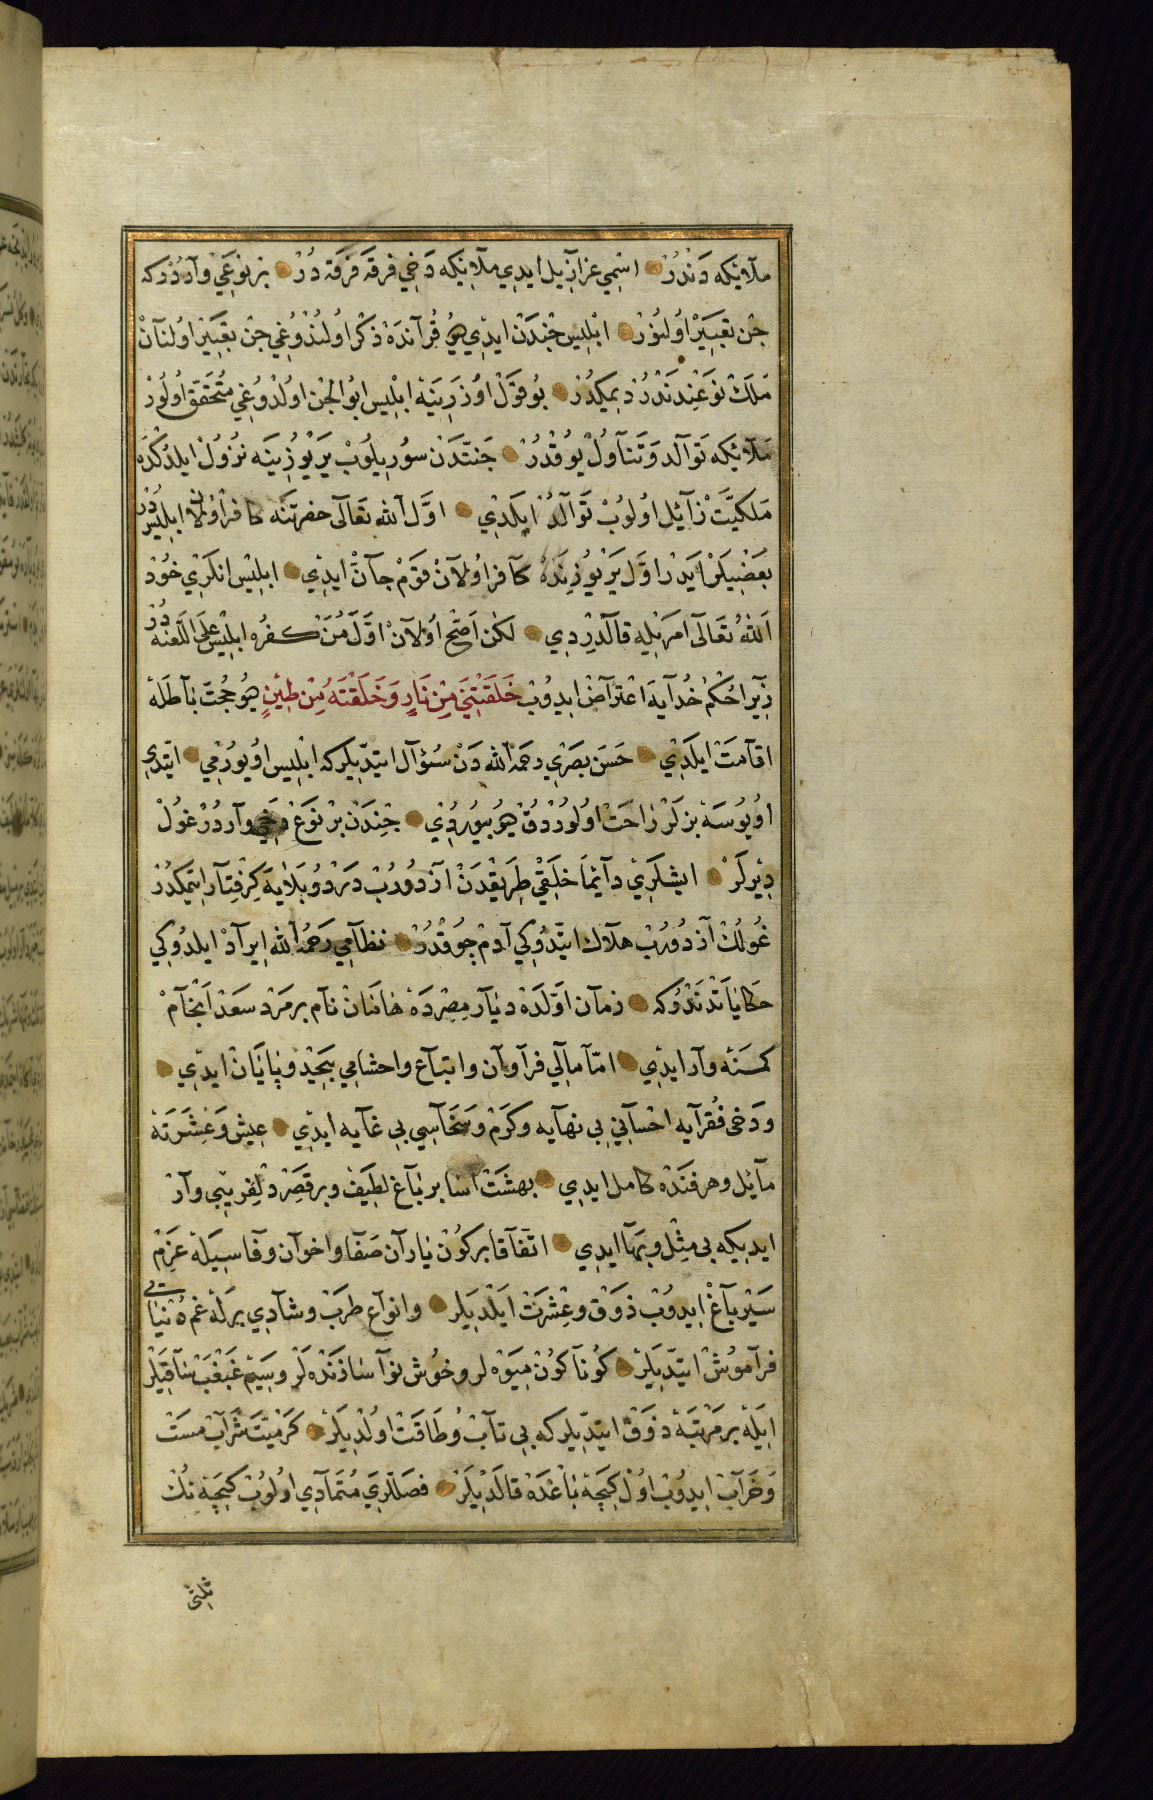 ملائیکه دندر اسمی عزازیل ایدی ملائیکه دخی فرقه فرقه در بر نوعی واردر که
جن تعبیر اولنور ابلیس جندن ایدی هو قرآنده ذکر اولندوغی جن تعبیر اولنان
ملک نوعندندر دیمکدر بو قول اوزرینه ابلیس ابو الجن اولدوغی متحقق اولور
ملائیکه توالد و تناول یوقدر جنتدن سوریلوب یر یوزینه نزول ایلدکده
ملکیت زائل اولوب توالد ایلدی اول الله تعالی حضرتنه کافر اولان ابلیس در
بعضیلر ایدر اول یر یوزنده کافر اولان قوم جان ایدی ابلیس انکری خود
الله تعالی امریله قالدردی لکن اصح اولان اول من کفره ابلیس علی اللعنه در
زیرا حکم خدایه اعتراض ایدوب خلقتنی من نار وخلقته من طین هو حجت باطله
اقامت ایلدی حسن بصری رحمه الله دن سؤال ایتدیلر که ابلیس اویورمی ایتدی
اویوسه بزلر راحت اولوردق هو بیوردی جندن بر نوع دخی واردر غول
دیرلر ایشلری دائما خلقی طریقدن ازدورب درد و بلایه گرفتار ایتمکدر
غولك ازدورب هلاك ایتدوکی آدم چوقدر نظامی رحمه الله ایراد ایلدوکی
حکایاتدندر که زمان اولده دیار مصرده هامان نام بر مرد سعد انجام
کمسنه وار ایدی اما مالی فراوان واتباع واحشامی بیحد و پایان ایدی
ودخی فقرایه احسانی بی نهایه وکرم وسخاسی بی غایه ایدی عیش وعشرته
مائل وهر فنده کامل ایدی بهشت آسا بر باغ لطیف وبر قصر دلفریبی وار
ایدیکه بی مثل وبها ایدی اتفاقا بر کون یاران صفا واخوان وفا سیله عزم
سیر باغ ایدوب ذوق وعشرت ایلدیلر وانواع طرب وشادی برله غم دنیایی
فراموش ایتدیلر کوناکون میوه لر وخوش نوا سازنده لر وسیم غبغب ساقیلر
ایله بر مرتبه ذوق ایتدیلر که بی تاب و طاقت اولدیلر کرمیت شراب مست
وخراب ایدوب اول کیجه باغده قالدیلر فصللری متمادی اولوب کیجه نك
ثلثی